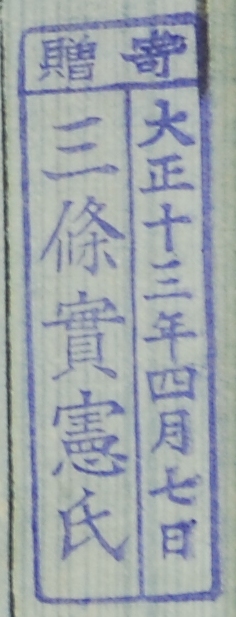 寄贈
大正十三年四月七日
三條實憲氏